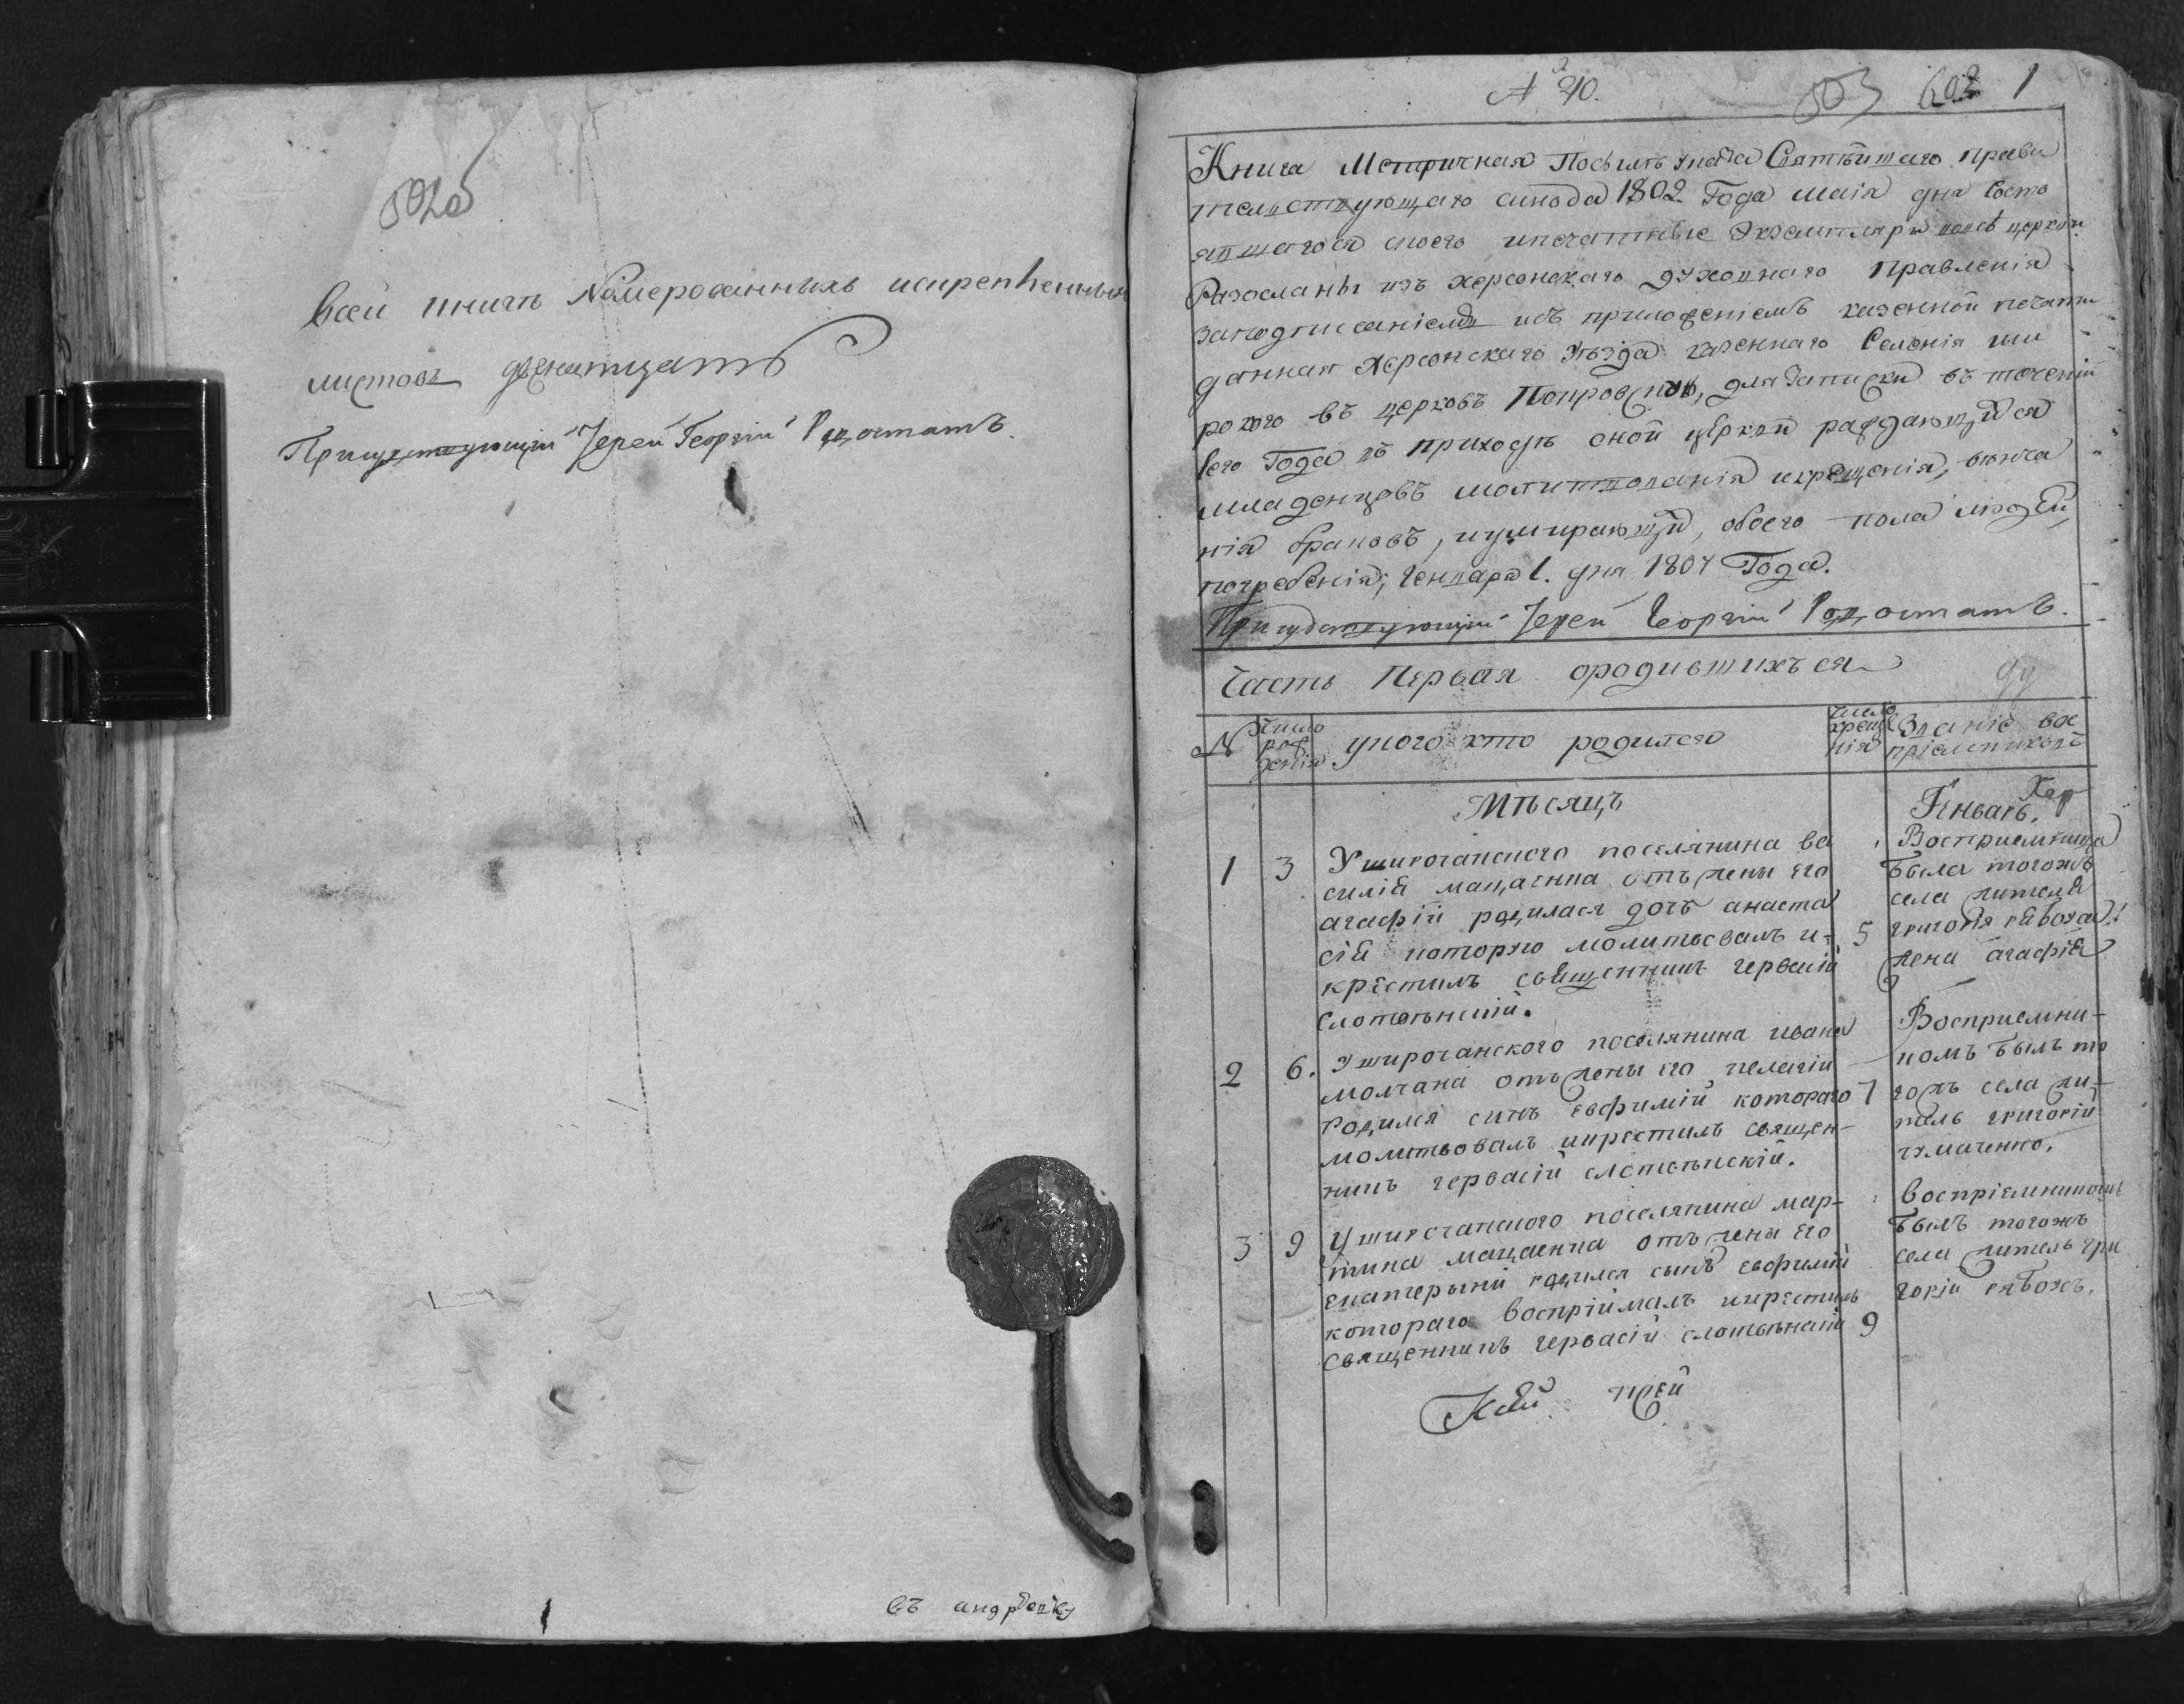 502об
Всей книгѣ Номерованныхъ искрепленныхъ
листовъ двенатцать
Присудствующій Іерей Георгій
съ андр
№ 20.
503 602 1
Книга Метричная Посилѣ указа Святѣйшаго прави
телствующаго синода 1802 Года маія дня Состо
явшагося скоего ипечатные Экземпляры повсѣ церкви
Разосланы изъ херсонскаго духовнаго Правленія
заподписаніемъ исъ приложеніемъ казенной печати
данная Херсонскаго Уѣзда казеннаго Селенія ши
рокого въ церковъ Покровскую, для Записки въ теченій
сего Года въ приходѣ оной церкви раждающийся
младенцовъ молитвованія икрещенія, вѣнча
нія браковъ, иумирающий, обоего пола людей
погребенія; Генваря 1. дня 1804 Года.
Присудствующій Іерей Георгій
Часть Первая ородившихъся
№ Число рождения укого кто родился число крещенія Званіе вос
пріемниковъ
Мѣсяцъ Генварь.
1 3 Ушироганского поселянина ва
силія мацаенка отъ жены его
агафій родилася дочь анаста
сія которую молитвовалъ и
крестилъ священникъ гервасій
слотвѣнскій.
5 Восприемница
была тогожъ
села жителя
григорія рябоха
жена агафія
2 6. Ушироганского поселянина ивана
молчана отъ жены его пелагіи
родился синъ евфимій которого
молитвовалъ икрестилъ священ-
никъ гервасій слотвѣнскій.
7 Восприемни-
комъ былъ то
гожъ села жи-
тель григорій
чумаченко.
3 9 Ушироганского поселянина мар-
тина мацаенка отъ жены его
екатерыній родился сынъ евфимій
котораго воспріймалъ икрестилъ
священникъ гервасій слотвѣнскій
9 воспріемникомъ
былъ тогожъ
села житель гри
горій рябохъ.